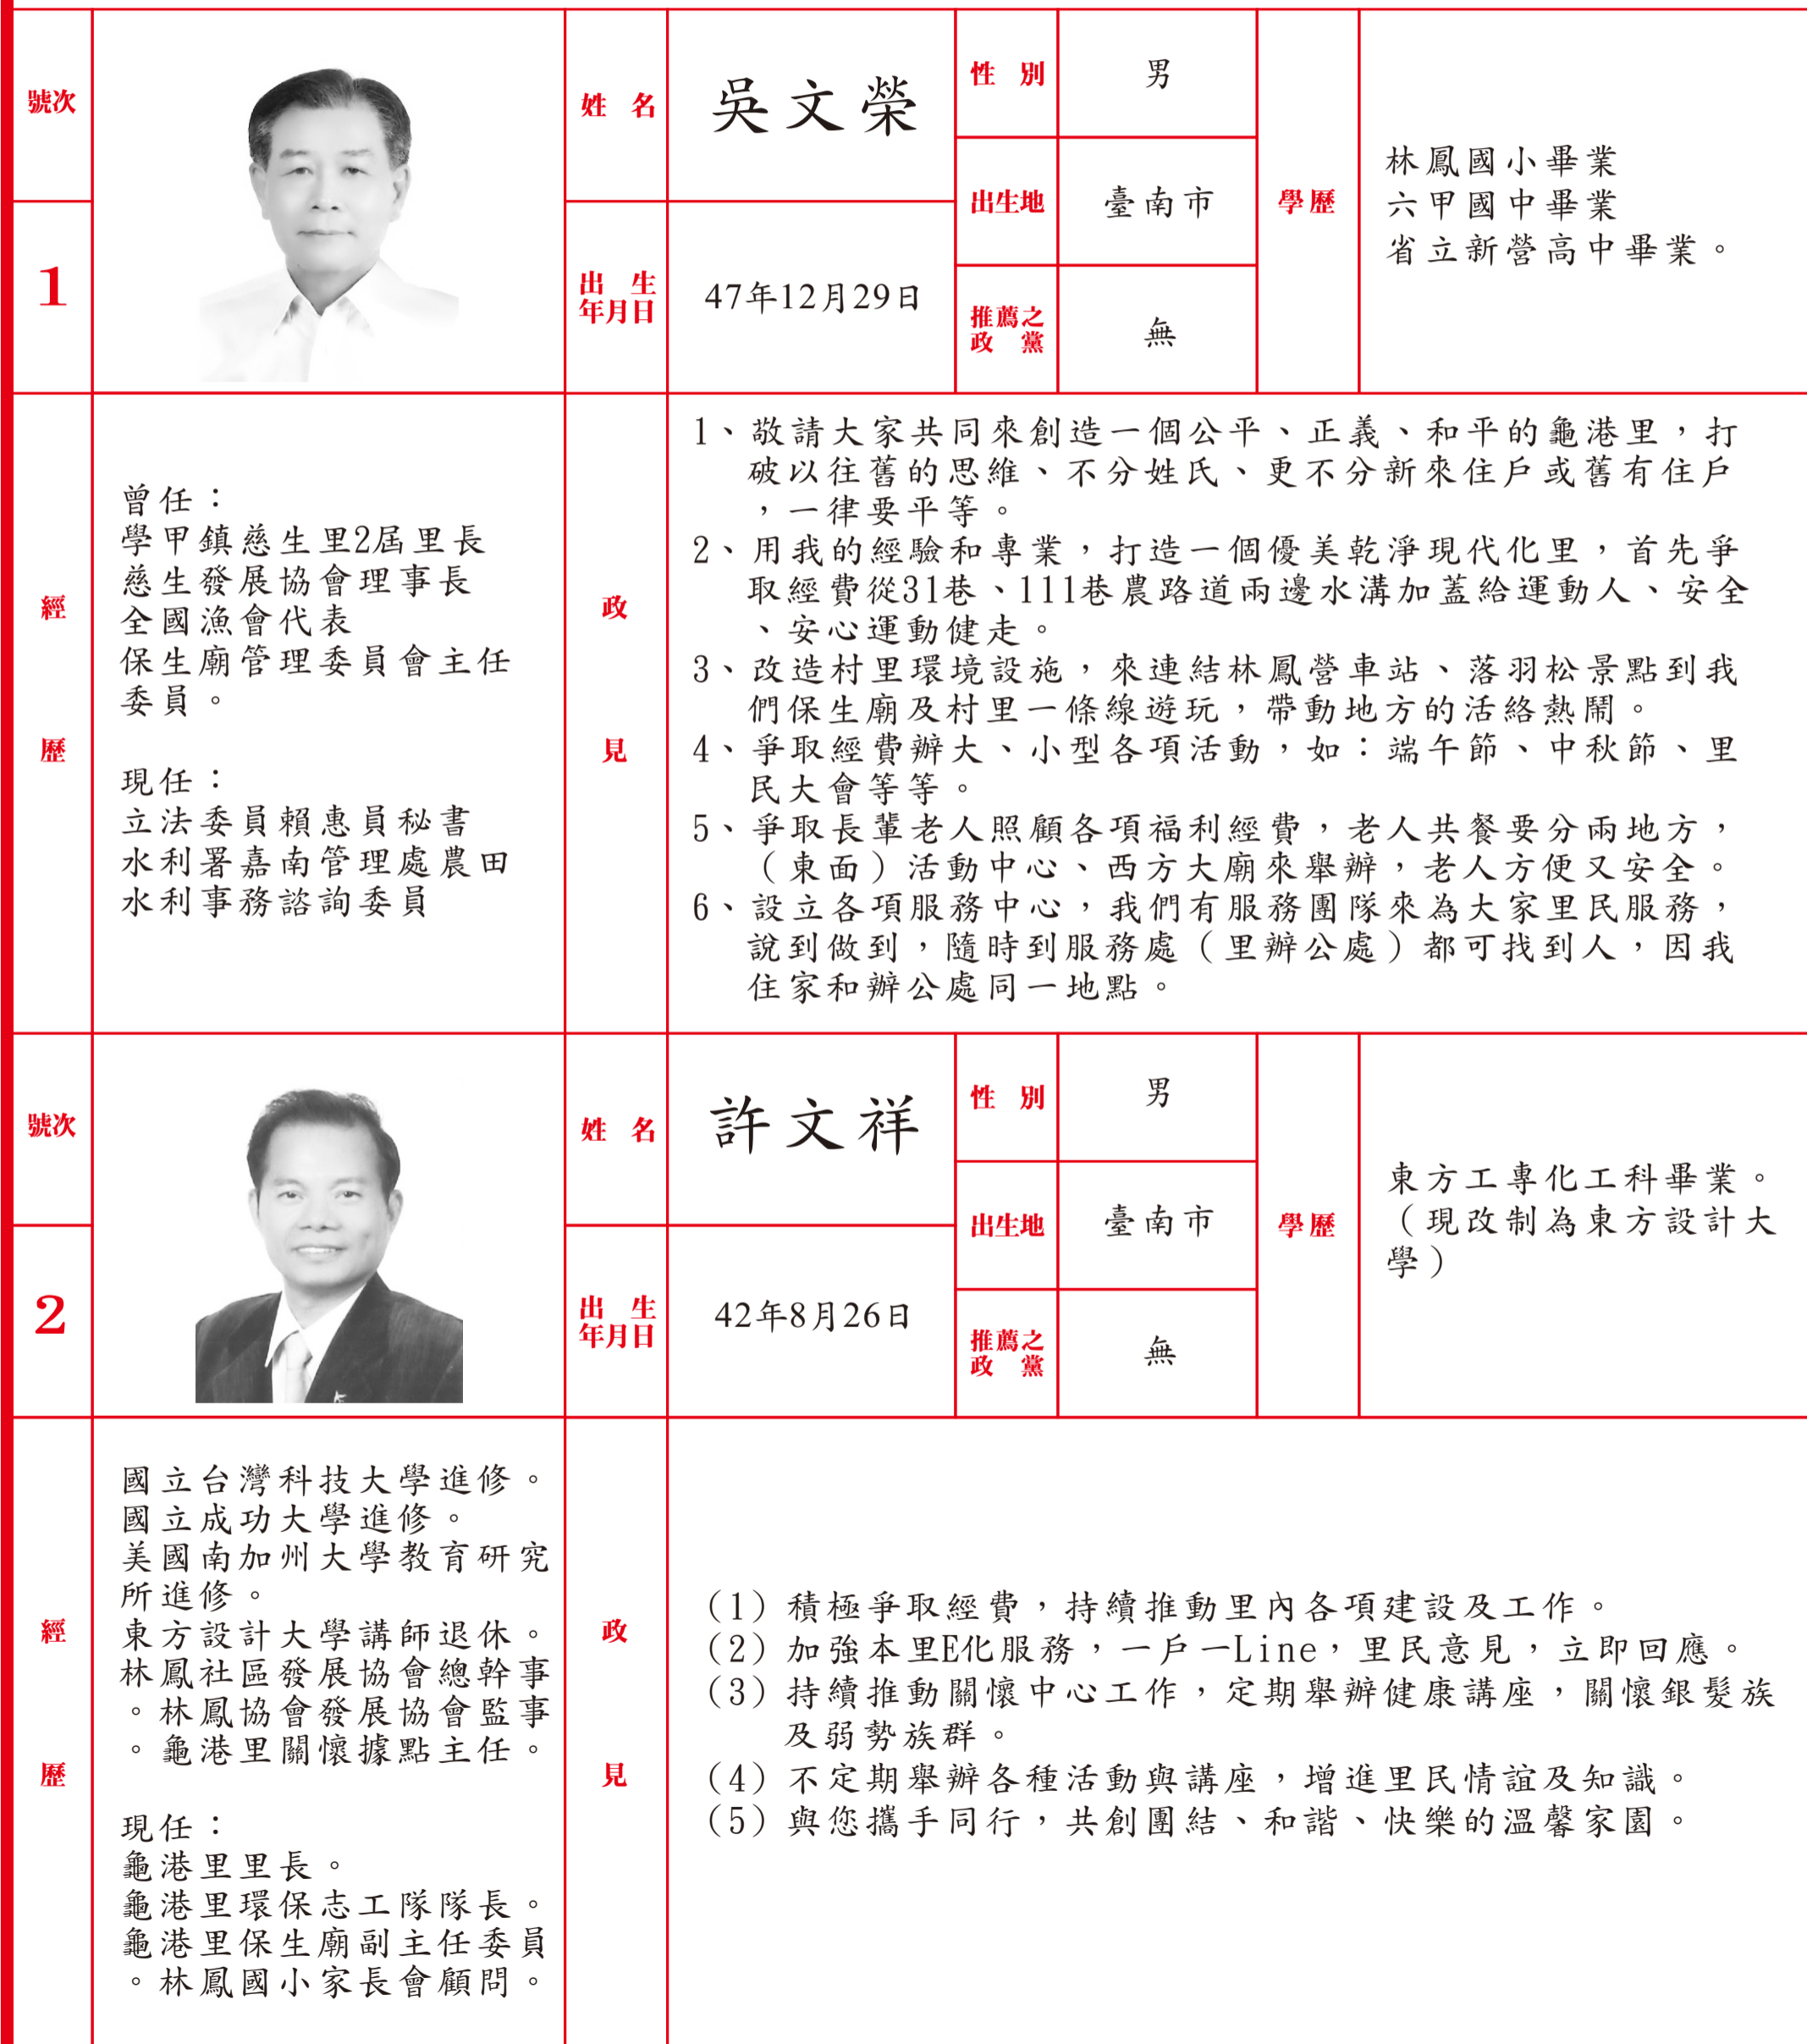 號次
1
姓名
吳文榮
出生年月日
47年12月29日
性別
男
出生地
臺南市
推薦之政黨
無
學歷
林鳳國小畢業
六甲國中畢業
省立新營高中畢業。
經歷
曾任：
學甲鎮慈生里2屆里長
慈生發展協會理事長
全國漁會代表
保生廟管理委員會主任
委員。
現任：
立法委員賴惠員秘書
水利署嘉南管理處農田
水利事務諮詢委員
政見
1、敬請大家共同來創造一個公平、正義、和平的龜港里，打
破以往舊的思維、不分姓氏、更不分新來住戶或舊有住戶
，一律要平等。
2、用我的經驗和專業，打造一個優美乾淨現代化里，首先爭
取經費從31巷、111巷農路道兩邊水溝加蓋給運動人、安全
、安心運動健走。
3、改造村里環境設施，來連結林鳳營車站、落羽松景點到我
們保生廟及村里一條線遊玩，帶動地方的活絡熱鬧。
4、爭取經費辦大、小型各項活動，如：端午節、中秋節、里
民大會等等。
5、爭取長輩老人照顧各項福利經費，老人共餐要分兩地方，
（東面）活動中心、西方大廟來舉辦，老人方便又安全。
6、設立各項服務中心，我們有服務團隊來為大家里民服務，
說到做到，隨時到服務處（里辦公處）都可找到人，因我
住家和辦公處同一地點。
號次
2
姓名
許文祥
出生年月日
42年8月26日
性別
男
出生地
臺南市
推薦之政黨
無
學歷
東方工專化工科畢業。
（現改制為東方設計大
學）
經歷
國立台灣科技大學進修。
國立成功大學進修。
美國南加州大學教育研究
所進修。
東方設計大學講師退休。
林鳳社區發展協會總幹事
。林鳳協會發展協會監事
。龜港里關懷據點主任。
現任：
龜港里里長。
龜港里環保志工隊隊長。
龜港里保生廟副主任委員
。林鳳國小家長會顧問。
政見
（1）積極爭取經費，持續推動里內各項建設及工作。
（2）加強本里E化服務，一戶一Line，里民意見，立即回應。
（3）持續推動關懷中心工作，定期舉辦健康講座，關懷銀髮族
及弱勢族群。
（4）不定期舉辦各種活動與講座，增進里民情誼及知識。
（5）與您攜手同行，共創團結、和諧、快樂的溫馨家園。